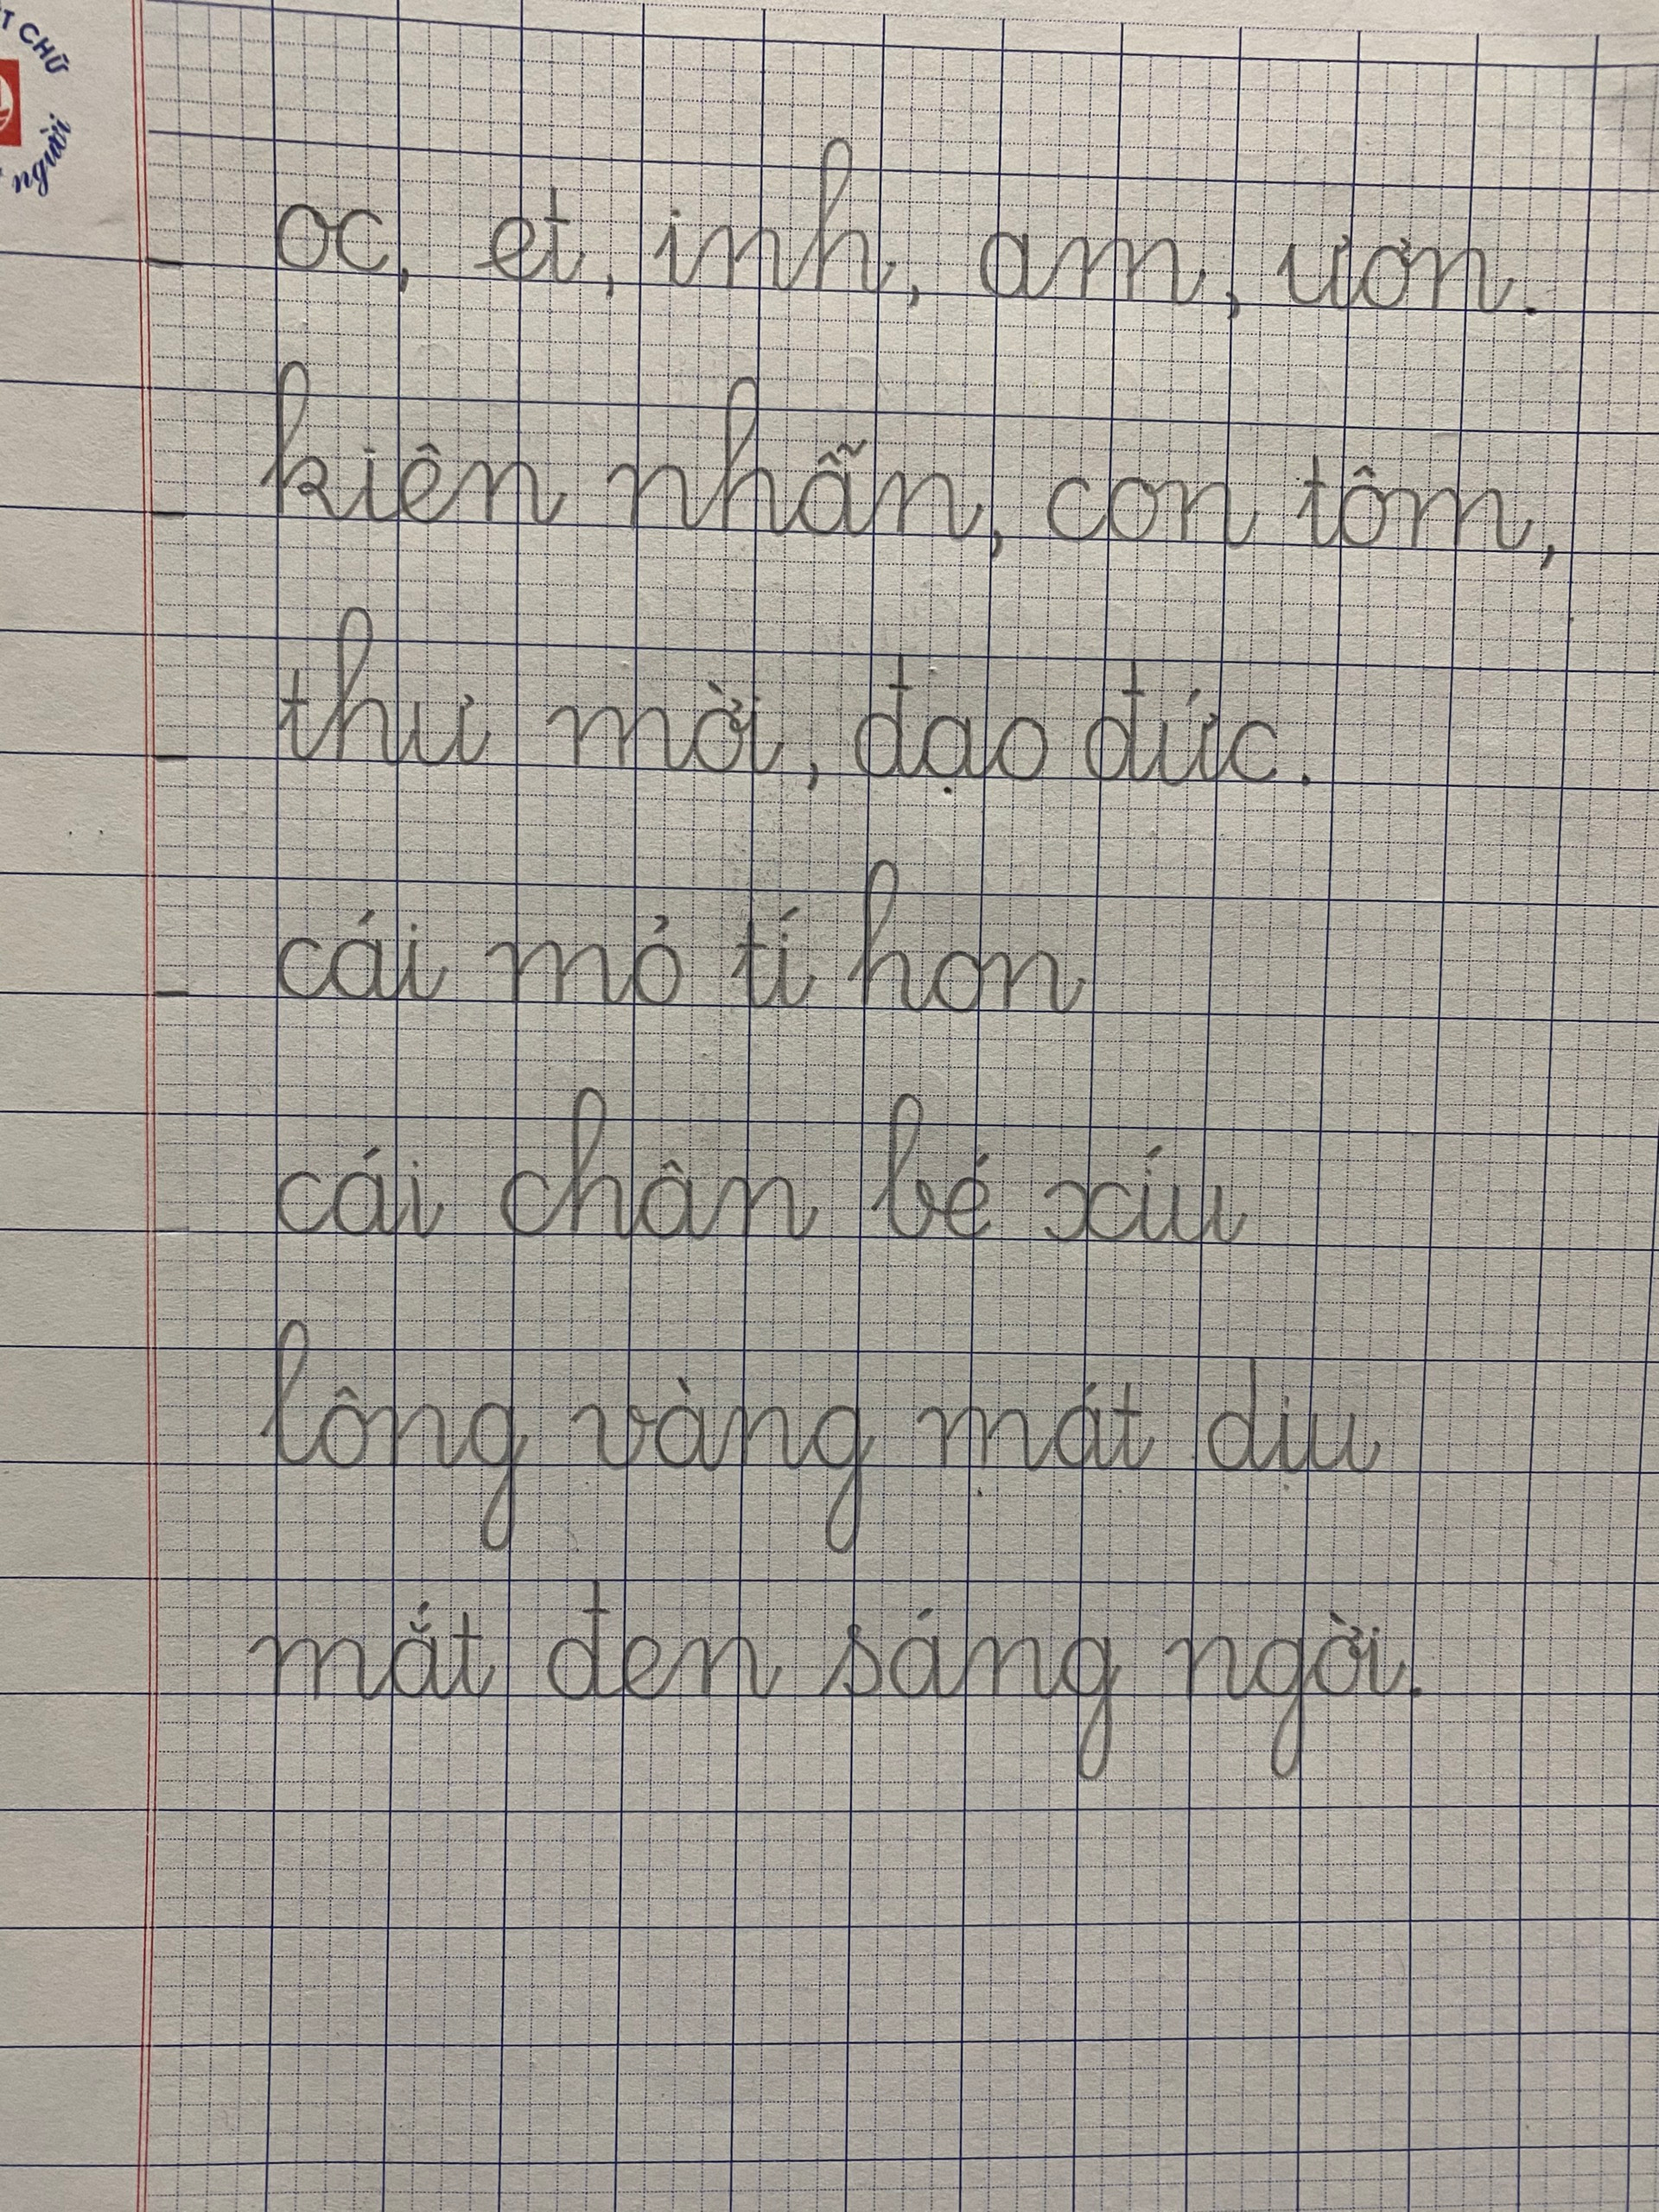 T CHỮ
người
- oc, et, inh, am, ươn.
- kiên nhẫn, con tôm,
- thư mời, đạo đức.
- cái mỏ tí hon
cái chân bé xíu
lông vàng mát dịu
mắt đen sáng ngời.